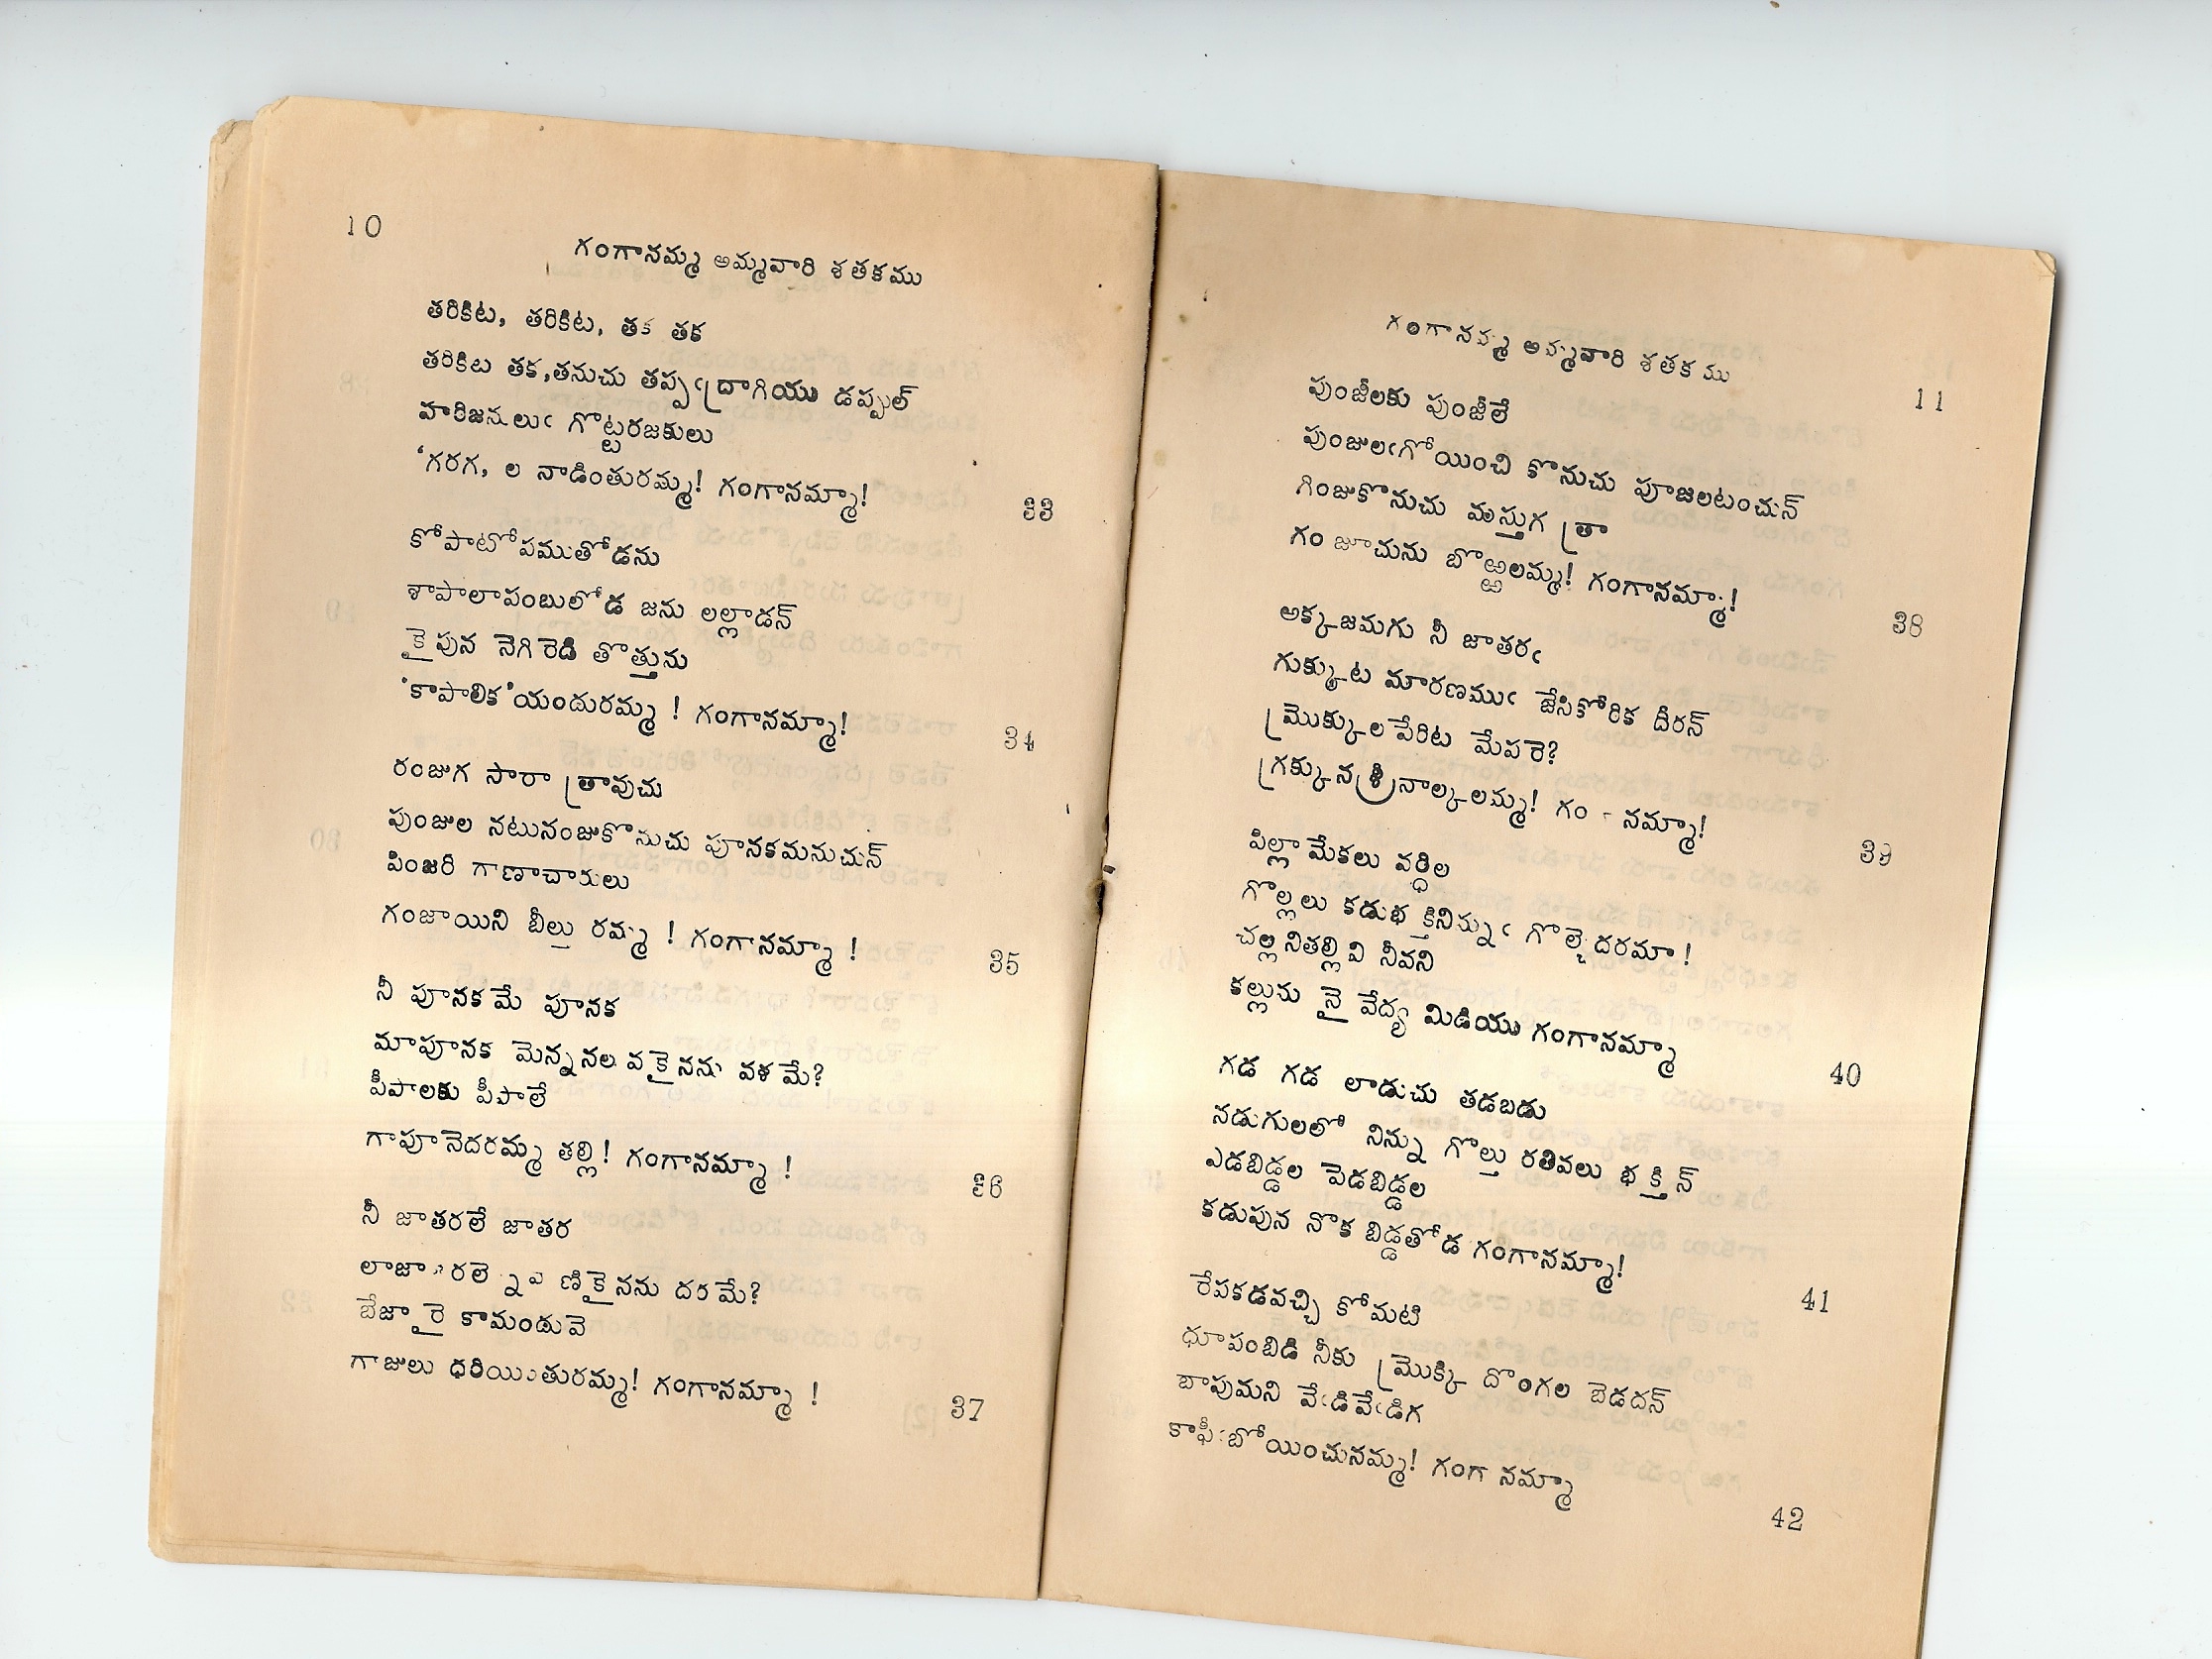 10
గంగానమ్మ అమ్మవారి శతకము
తరికిట, తరికిట, తక తక
తరికిట తక,తనుచు తప్పఁద్రాగియు డప్పుల్
హరిజనులుఁ గొట్టరజకులు
‘గరగ, ల నాడింతురమ్మ! గంగానమ్మా!
33
కోపాటోపముతోడను
శాపాలాపంబులోడ జను లల్లాడన్
కైపున నెగిరెడి తొత్తును
‘కాపాలిక’యందురమ్మ ! గంగానమ్మా!
34
రంజుగ సారా త్రావుచు
పుంజుల నటునంజుకొనుచు పూనకమనుచున్
పింజరి గాణాచారులు
గంజాయిని బీల్తు రమ్మ ! గంగానమ్మా !
35
నీ పూనకమే పూనక
మాపూనక మెన్ననల వకైనను వశమే?
పీపాలకు పీపాలే
గాపూనెదరమ్మ తల్లి! గంగానమ్మా !
36
నీ జాతరలే జాతర
ణికైనను దరమే?
బేజారై కామండువె
గాజులు ధరియింతురమ్మ! గంగానమ్మా !
37
గంగానమ్మ అమ్మవారి శతకము
11
పుంజీలకు పుంజీలే
పుంజులఁగోయించి కొనుచు పూజలటంచున్
గింజుకొనుచు మస్తుగ త్రా
గం జూచును బొఱ్ఱలమ్మ! గంగానమ్మా!
38
అక్కజమగు నీ జాతరఁ
గుక్కుట మారణముఁ జేసికోరిక దీరన్
మ్రొక్కుల పేరిట మేపరె?
గ్రక్కున శ్రీనాల్కలమ్మ! గం - నమ్మా!
39
పిల్లా మేకలు వర్ధిల
గొల్లలు కడుభక్తినిన్నుఁ గొల్చెదరమా!
చల్లనితల్లివి నీవని
కల్లును నైవేద్య మిడియు గంగానమ్మా
40
గడ గడ లాడుచు తడబడు
నడుగులలో నిన్ను గొల్తు రతివలు భక్తిన్
ఎడబిడ్డల పెడబిడ్డల
కడుపున నొక బిడ్డతోడ గంగానమ్మా!
41
రేపకడవచ్చి కోమటి
ధూపంబిడి నీకు మ్రొక్కి దొంగల బెడదన్
బాపుమని వేఁడివేఁడిగ
కాఫీఁబోయించునమ్మ! గంగానమ్మా
42